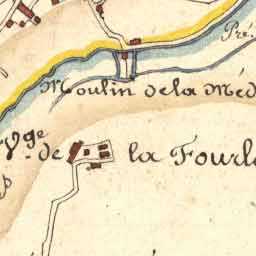 Pré
Moulin de la Méd
Vge de la Fourl